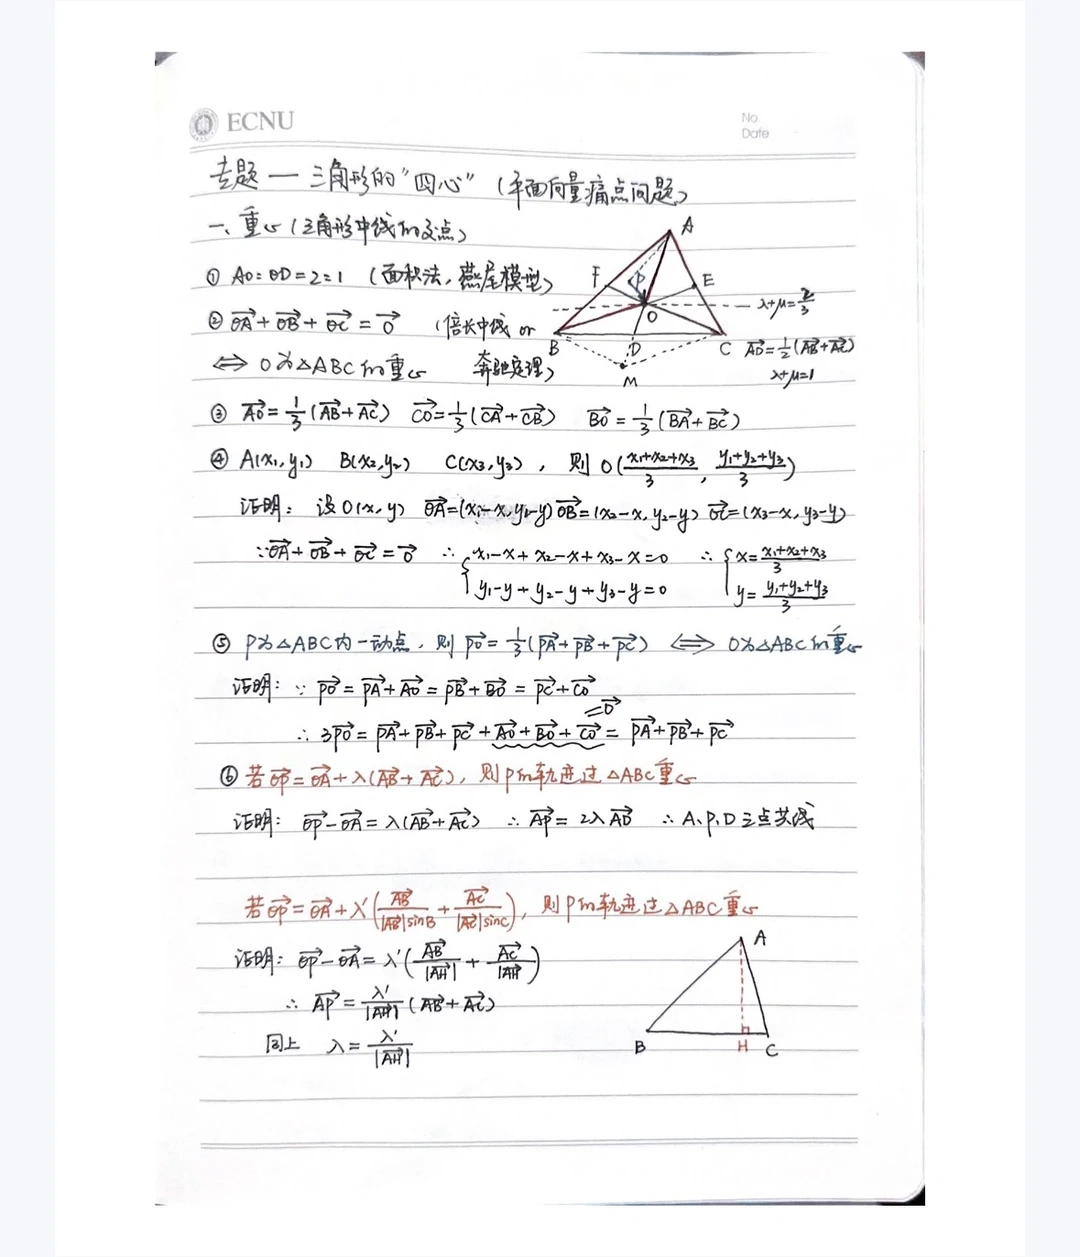 ECNU
No.
Date
专题一 三角形的“四心”(平面向量痛点问题)
一、重心(三角形中线的交点)
① AO:OD=2:1 (面积法,燕尾模型)
② OA→+OB→+OC→=0→ (倍长中线 or
⇔ O为△ABC的重心 奔驰定理)
A
F
P
E
O
λ+μ=2/3
B
D
C
AD→=1/2(AB→+AC→)
λ+μ=1
M
③ AO→=1/3(AB→+AC→) CO→=1/3(CA→+CB→) BO→=1/3(BA→+BC→)
④ A(x₁,y₁) B(x₂,y₂) C(x₃,y₃),则O((x₁+x₂+x₃)/3, (y₁+y₂+y₃)/3)
证明:设O(x,y) OA→=(x₁-x,y₁-y) OB→=(x₂-x,y₂-y) OC→=(x₃-x,y₃-y)
∵OA→+OB→+OC→=0→ ∴ { x₁-x+x₂-x+x₃-x=0 ∴ { x=(x₁+x₂+x₃)/3
y₁-y+y₂-y+y₃-y=0 y=(y₁+y₂+y₃)/3
⑤ P为△ABC内一动点,则PO→=1/3(PA→+PB→+PC→) ⇔ O为△ABC的重心
证明:∵PO→=PA→+AO→=PB→+BO→=PC→+CO→
=0→
∴3PO→=PA→+PB→+PC→+AO→+BO→+CO→=PA→+PB→+PC→
⑥ 若OP→=OA→+λ(AB→+AC→),则P的轨迹过△ABC重心
证明:OP→-OA→=λ(AB→+AC→) ∴AP→=2λAD→ ∴A、P、D三点共线
若OP→=OA→+λ'(AB→/(|AB→|sinB)+AC→/(|AC→|sinC)),则P的轨迹过△ABC重心
证明:OP→-OA→=λ'(AB→/|AH→|+AC→/|AH→|)
∴AP→=λ'/|AH→|(AB→+AC→)
同上 λ=λ'/|AH→|
A
B
H
C